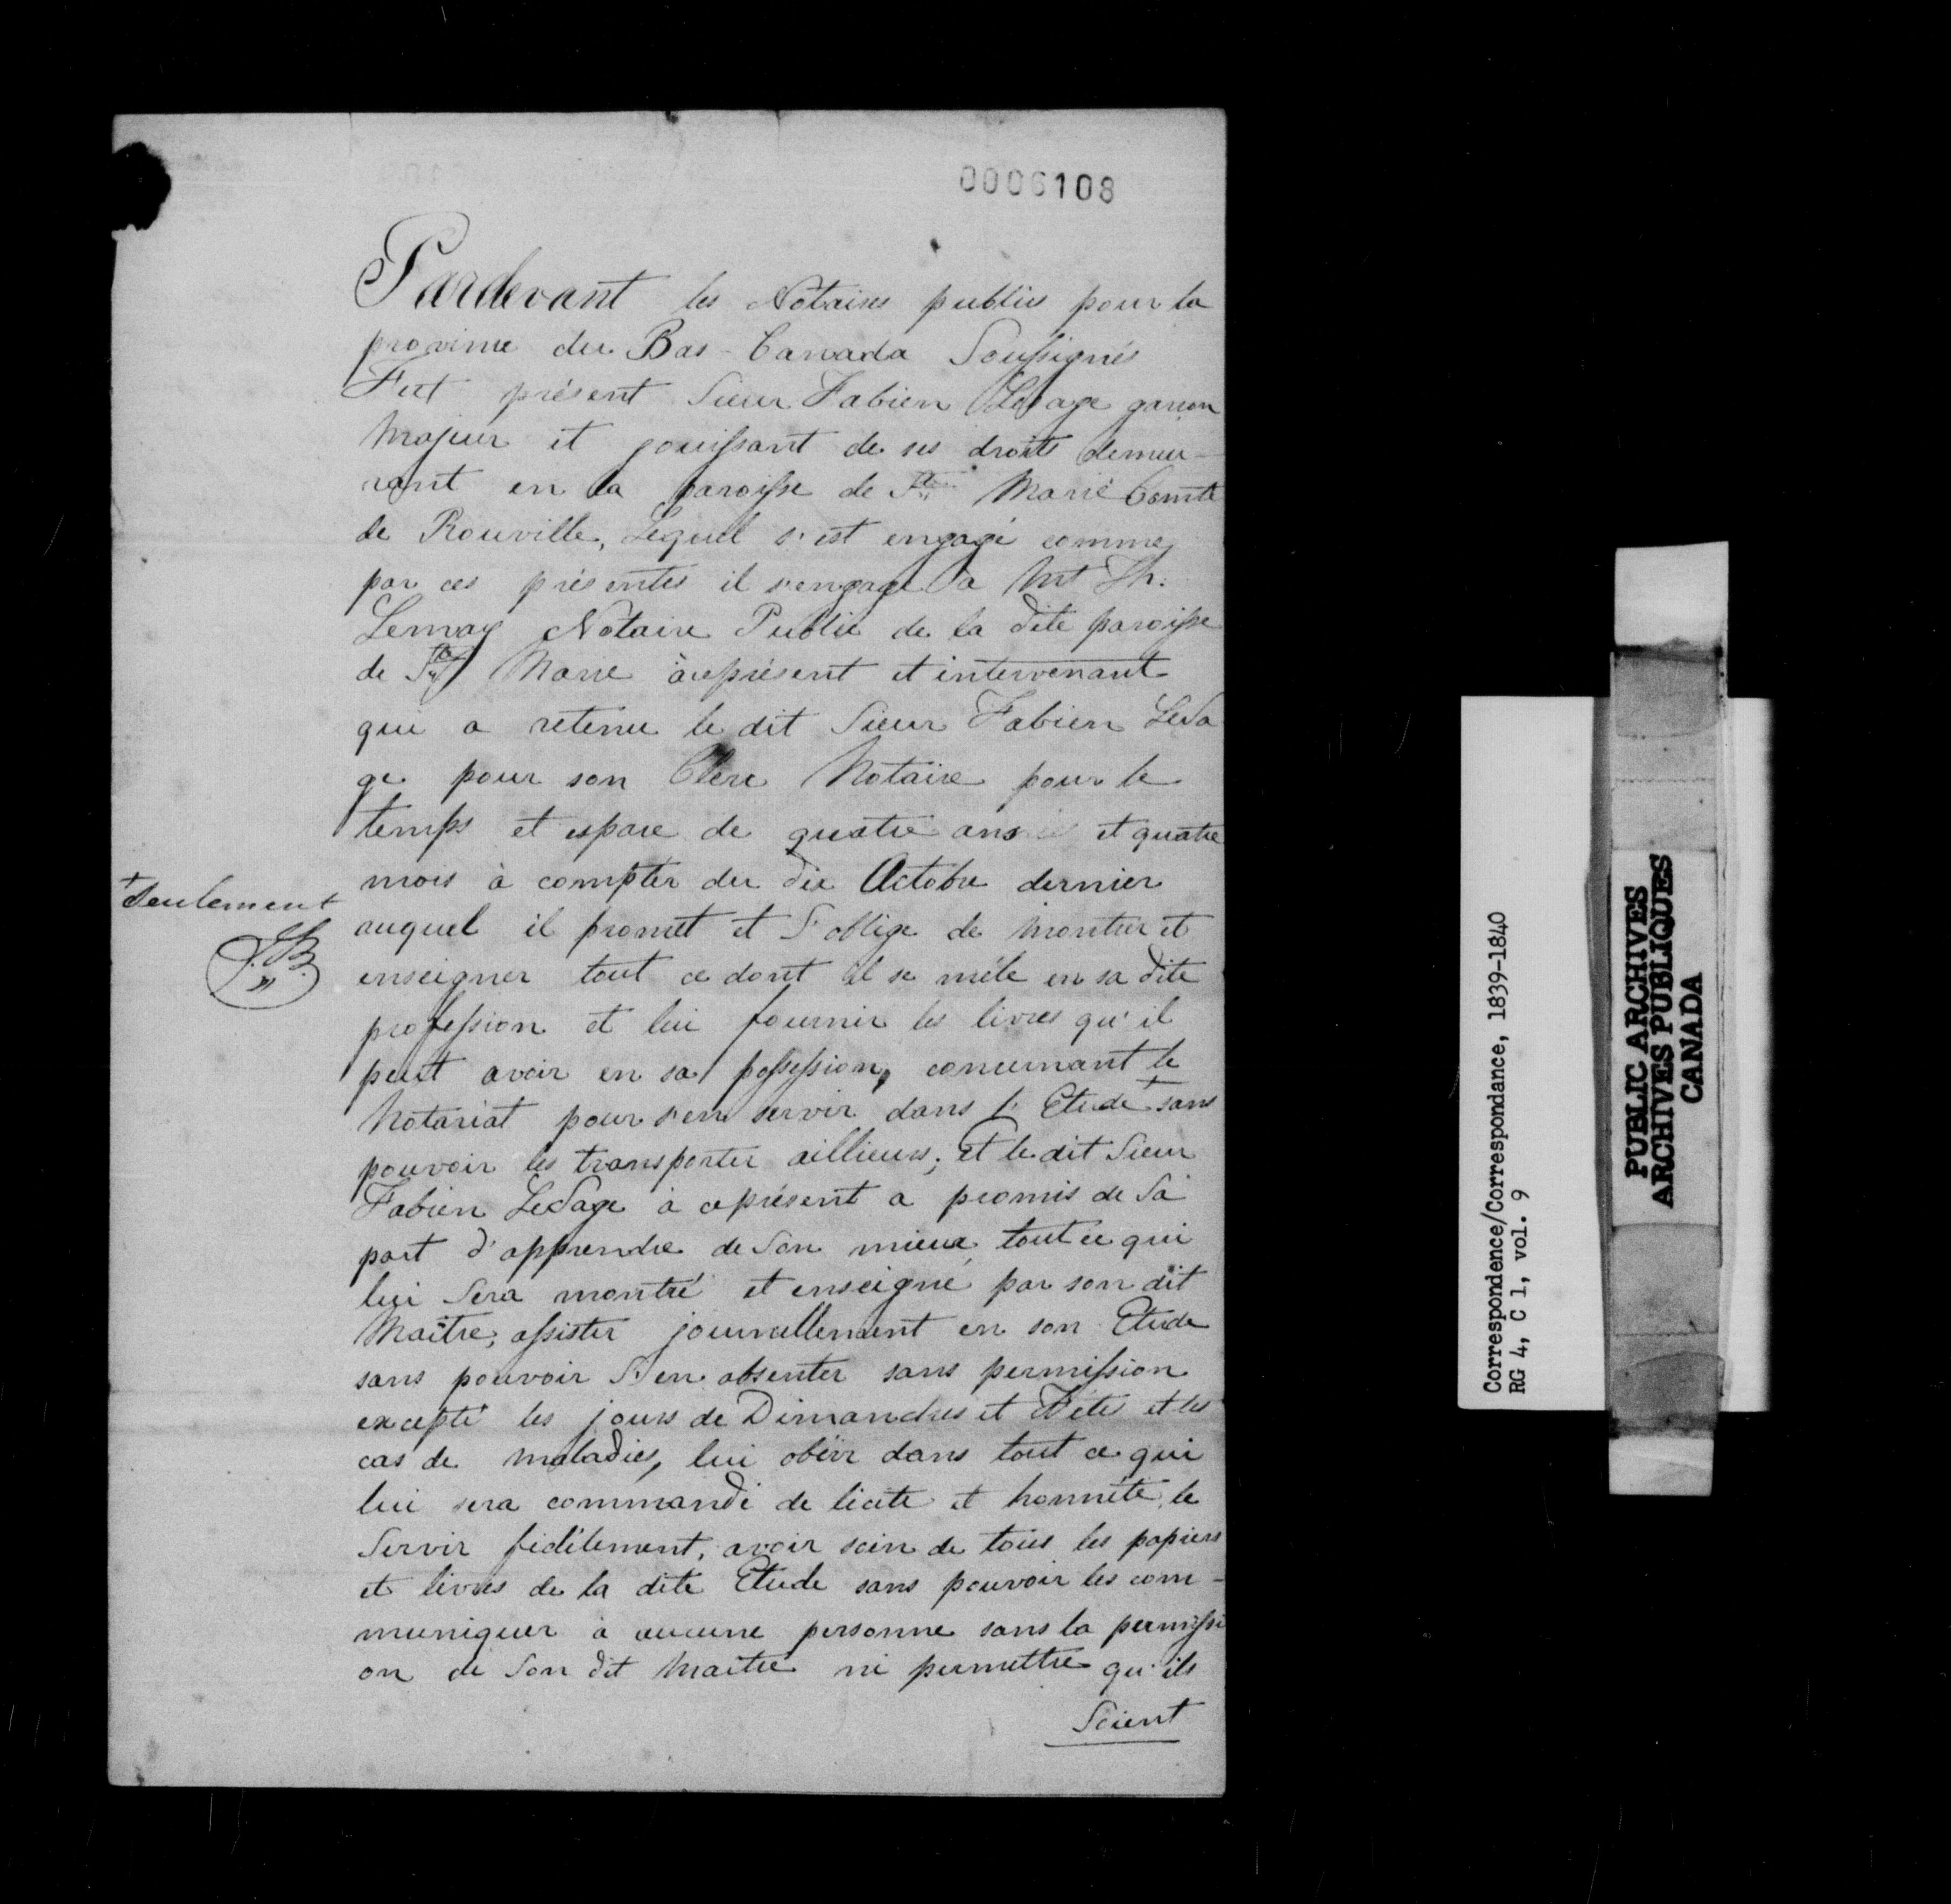 0006108
Pardevant les Notaires publics pour la
province du Bas-Canada Soussignés
Fut présent Sieur Fabien LeSage garçon
Majeur et jouissant de ses droits demeu-
rant en la paroisse de Ste Marie Comté
de Rouville, Lequel s'est engagé comme
par ces présentes il s'engage à Mt Th.
Lemay Notaire Public de la dite paroisse
de Ste Marie àceprésent et intervenant
qui a retenu le dit Sieur Fabien LeSa
ge pour son Clerc Notaire pour le
temps et espace de quatre ans et quatre
mois à compter du dix Octobre dernier
auquel il promet et S'oblige de montrer et
enseigner tout ce dont il se mêle en sa dite
profession et lui fournir les livres qu'il
peut avoir en sa possession, concernant le
Notariat pour s'en servir dans l'Etude + sans
pouvoir les transporter aillieurs; Et le dit Sieur
Fabien LeSage à ceprésent a promis de Sa
part d'apprendre de Son mieux tout ce qui
lui Sera montré et enseigné par son dit
Maître, assister journellement en son Etude
sans pouvoir S'en absenter sans permission
excepté les jours de Dimanches et Fêtes et les
cas de maladies, lui obéir dans tout ce qui
lui sera commandé de licite et honnête, le
Servir fidèlement, avoir soin de tous les papiers
et livres de la dite Etude sans pouvoir les com-
muniquer à aucune personne sans la permissi
on de Son dit Maître ni permettre qu'ils
Soient
+ Seulement
J.B.
Correspondence/Correspondance, 1839-1840
RG 4, C 1, vol. 9
PUBLIC ARCHIVES
ARCHIVES PUBLIQUES
CANADA